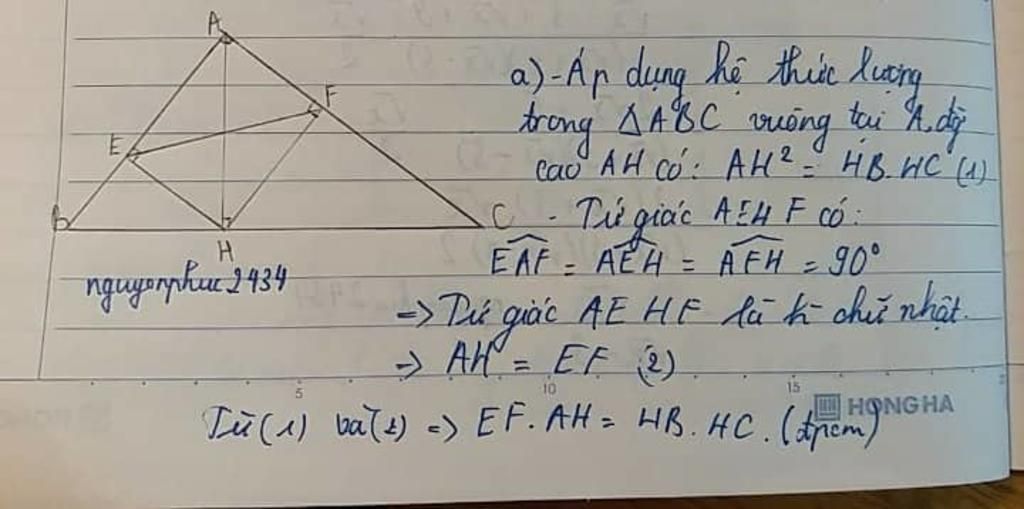 A
F
E
B
H
C
nguyenphuc2434
a) - Áp dụng hệ thức lượng
trong ΔABC vuông tại A, đg
cao AH có: AH² = HB.HC (1)
- Tứ giác AEHF có:
\widehat{EAF} = \widehat{AEH} = \widehat{AFH} = 90°
=> Tứ giác AEHF là h chữ nhật.
=> AH = EF (2)
Từ (1) và (2) => EF.AH = HB.HC. (đpcm)
5 10 15
HONG HA